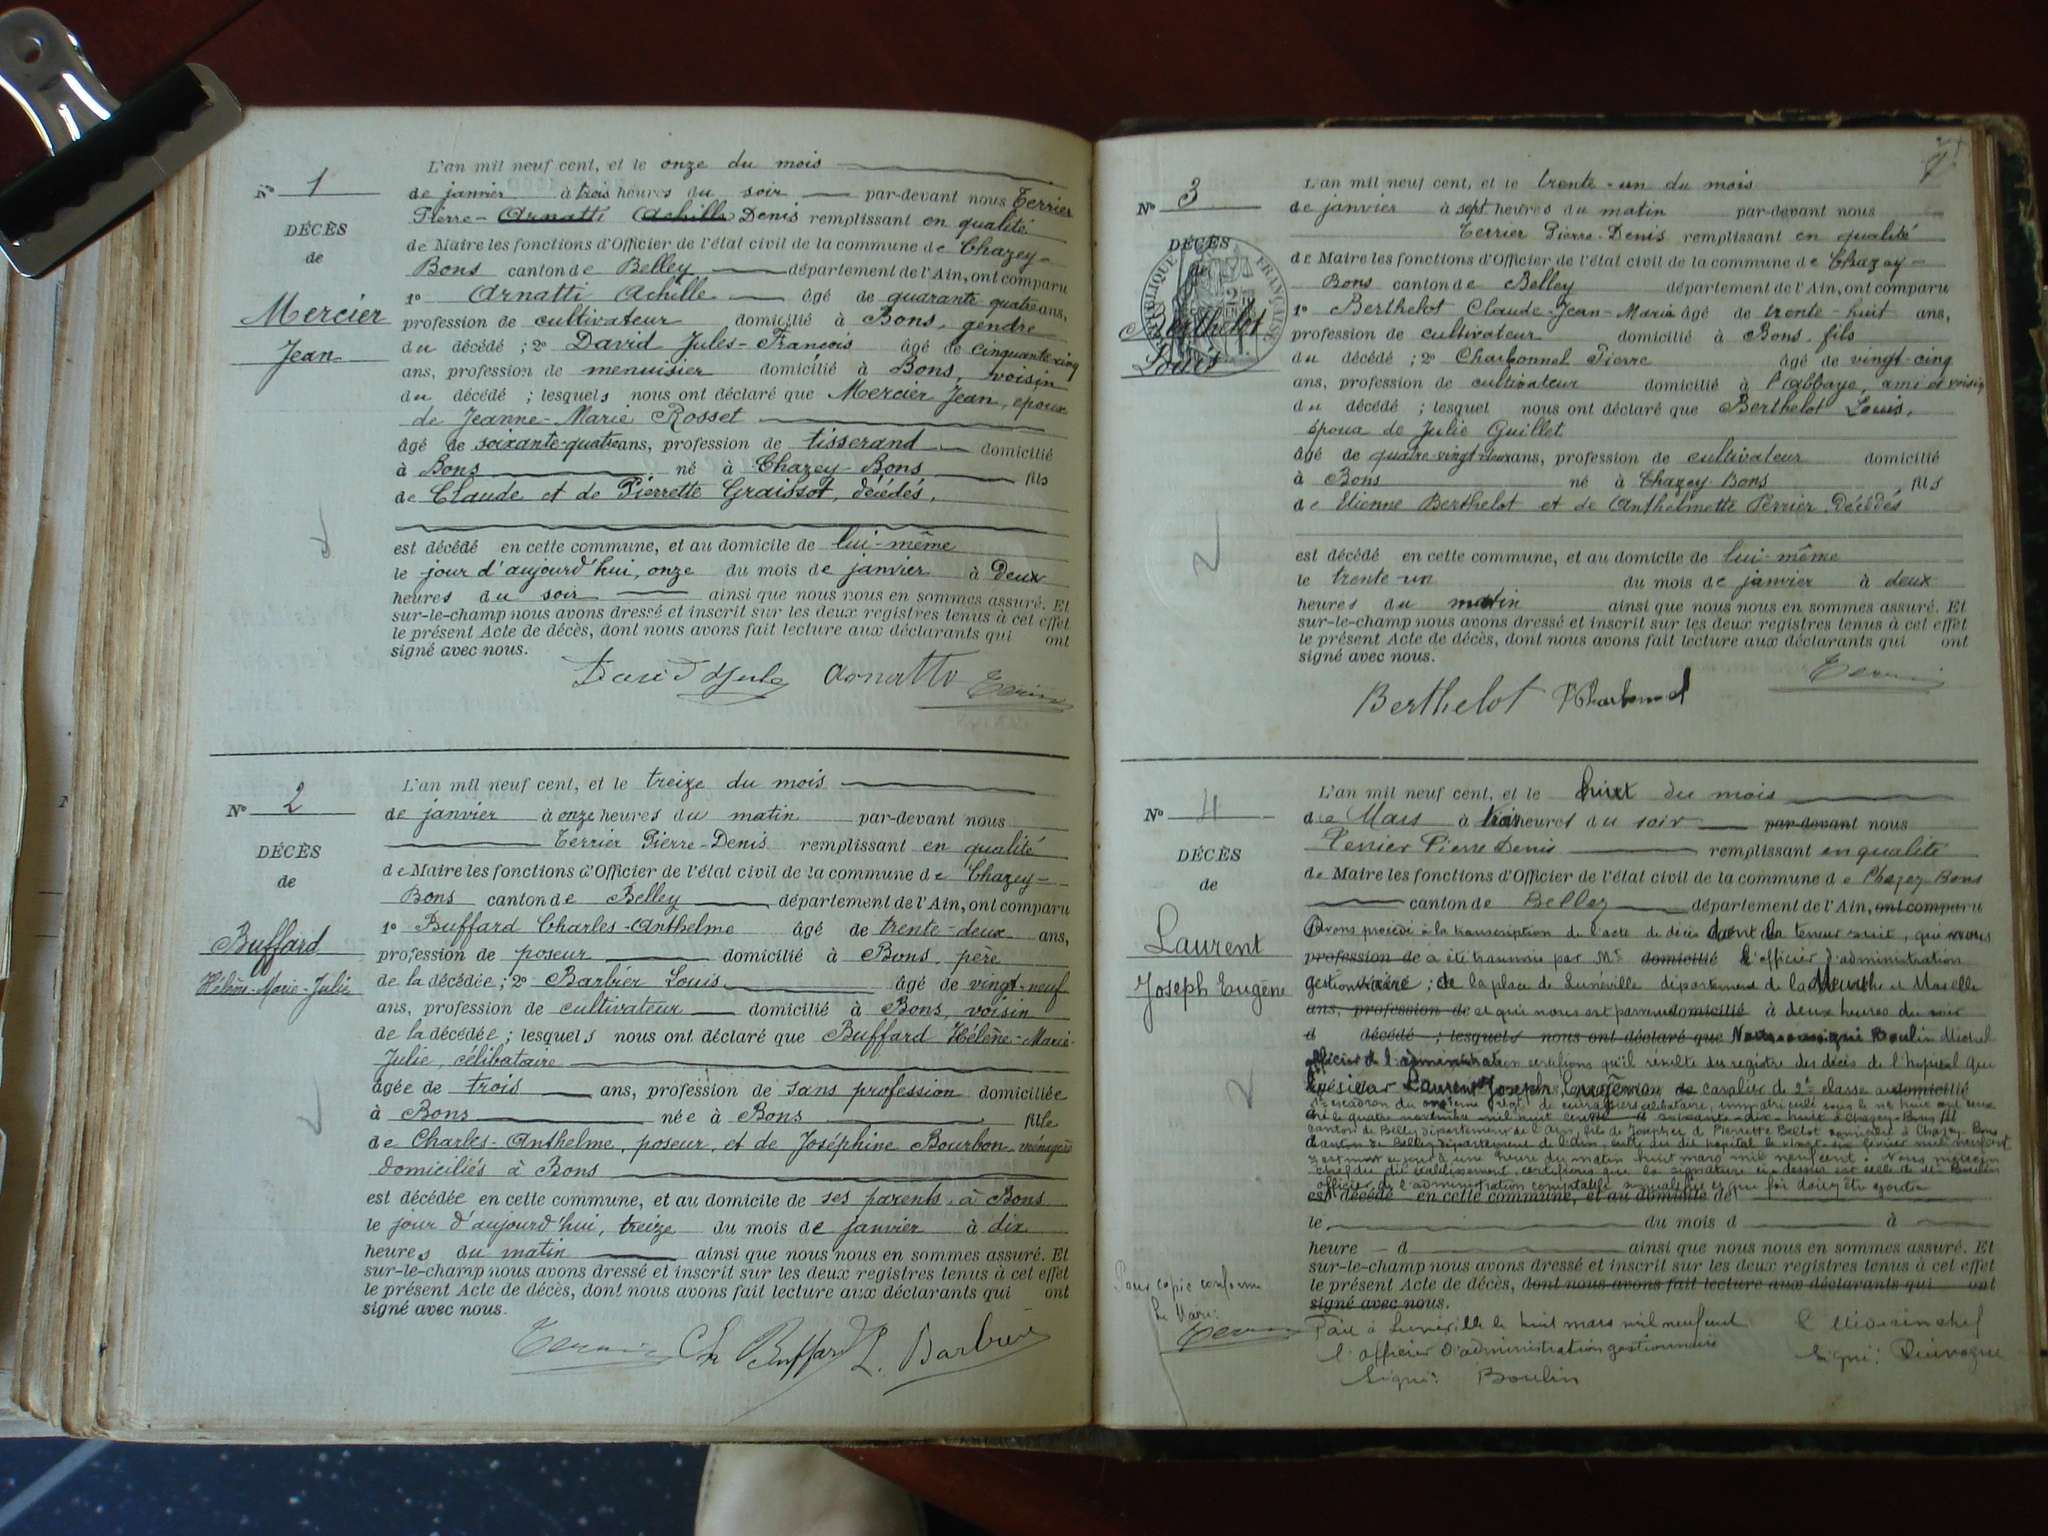 N° 1
DÉCÈS
de
Mercier
Jean
L'an mil neuf cent, et le onze du mois
de janvier à trois heures du soir par-devant nous Terrier
Pierre- Arnatti Achille Denis remplissant en qualité
de Maire les fonctions d'Officier de l'état civil de la commune de Chazey-
Bons canton de Belley département de l'Ain, ont comparu
1° Arnatti Achille âgé de quarante quatre ans,
profession de cultivateur domicilié à Bons, gendre
du décédé ; 2° David Jules-François âgé de cinquante-cinq
ans, profession de menuisier domicilié à Bons, voisin
du décédé ; lesquels nous ont déclaré que Mercier Jean, époux
de Jeanne-Marie Rosset
âgé de soixante-quatre ans, profession de tisserand domicilié
à Bons né à Chazey-Bons fils
de Claude et de Pierrette Graissot, décédés,
est décédé en cette commune, et au domicile de lui-même
le jour d'aujourd'hui, onze du mois de janvier à Deux
heures du soir ainsi que nous nous en sommes assuré. Et
sur-le-champ nous avons dressé et inscrit sur les deux registres tenus à cet effet
le présent Acte de décès, dont nous avons fait lecture aux déclarants qui ont
signé avec nous.
David Jules Arnatti Terrier
N° 2
DÉCÈS
de
Buffard
Hélène-Marie-Julie
L'an mil neuf cent, et le treize du mois
de janvier à onze heures du matin par-devant nous
Terrier Pierre-Denis remplissant en qualité
de Maire les fonctions d'Officier de l'état civil de la commune de Chazey-
Bons canton de Belley département de l'Ain, ont comparu
1° Buffard Charles-Anthelme âgé de trente-deux ans,
profession de poseur domicilié à Bons, père
de la décédée ; 2° Barbier Louis âgé de vingt-neuf
ans, profession de cultivateur domicilié à Bons, voisin
de la décédée ; lesquels nous ont déclaré que Buffard Hélène-Marie-
Julie, célibataire
âgée de trois ans, profession de sans profession domiciliée
à Bons née à Bons fille
de Charles-Anthelme, poseur, et de Joséphine Bourbon, ménagère
domiciliés à Bons
est décédée en cette commune, et au domicile de ses parents à Bons
le jour d'aujourd'hui, treize du mois de janvier à dix
heures du matin ainsi que nous nous en sommes assuré. Et
sur-le-champ nous avons dressé et inscrit sur les deux registres tenus à cet effet
le présent Acte de décès, dont nous avons fait lecture aux déclarants qui ont
signé avec nous.
Terrier Ch Buffard L. Barbier
N° 3
DÉCÈS
de
Berthelot
Louis
L'an mil neuf cent, et le trente-un du mois
de janvier à sept heures du matin par-devant nous
Terrier Pierre-Denis remplissant en qualité
de Maire les fonctions d'Officier de l'état civil de la commune de Chazey-
Bons canton de Belley département de l'Ain, ont comparu
1° Berthelot Claude-Jean-Maria âgé de trente-huit ans,
profession de cultivateur domicilié à Bons, fils
du décédé ; 2° Charbonnel Pierre âgé de vingt-cinq
ans, profession de cultivateur domicilié à l'Abbaye, ami et voisin
du décédé ; lesquel nous ont déclaré que Berthelot Louis,
époux de Julie Guillet
âgé de quatre-vingt-deux ans, profession de cultivateur domicilié
à Bons né à Chazey-Bons, fils
de Etienne Berthelot et de Anthelmette Perrier, Décédés
est décédé en cette commune, et au domicile de lui-même
le trente-un du mois de janvier à deux
heures du matin ainsi que nous nous en sommes assuré. Et
sur-le-champ nous avons dressé et inscrit sur les deux registres tenus à cet effet
le présent Acte de décès, dont nous avons fait lecture aux déclarants qui ont
signé avec nous.
Terrier
Berthelot P Charbonnel
N° 4
DÉCÈS
de
Laurent
Joseph Eugène
L'an mil neuf cent, et le huit du mois
de Mars à trois heures du soir par-devant nous
Terrier Pierre Denis remplissant en qualité
de Maire les fonctions d'Officier de l'état civil de la commune de Chazey Bons
canton de Belley département de l'Ain, ont comparu
Avons procédé à la transcription de l'acte de décès dont la teneur suit, qui nous
profession de a été transmis par Mr domicilié l'officier d'administration
gestionnaire ; de la place de Lunéville département de la Meurthe et Moselle
ans, profession de et qui nous est parvenu domicilié à deux heures du soir
d décédé ; lesquels nous ont déclaré que Nous soussigné Boulin Michel
officier de l'administration certifions qu'il résulte du registre des décès de l'hôpital que
le sieur Laurent Joseph Eugène profession de cavalier de 2e classe au domicilié
escadron du régt de cuirassiers célibataire, immatriculé sous le no huit cent
né le quatre novembre mil huit cent soixante dix huit à Chazey-Bons fils
canton de Belley département de l'Ain, fils de Joseph et de Pierrette Bellot domicilié à Chazey Bons
canton de Belley département de l'Ain, entré au dit hôpital le vingt-six février mil neuf cent
y est mort ce jour à une heure du matin huit mars mil neuf cent. Nous médecin
chef du dit établissement, certifions que la signature ci-dessus est celle de Mr Boulin
officier de l'administration comptable et que foi doit y être ajoutée
est décédé en cette commune, et au domicile de
le du mois d à
heure d ainsi que nous nous en sommes assuré. Et
sur-le-champ nous avons dressé et inscrit sur les deux registres tenus à cet effet
le présent Acte de décès, dont nous avons fait lecture aux déclarants qui ont
signé avec nous.
Pour copie conforme
Le Maire:
Terrier
Fait à Lunéville le huit mars mil neuf cent
l'officier d'administration gestionnaire
Signé: Boulin
le Médecin chef
Signé: